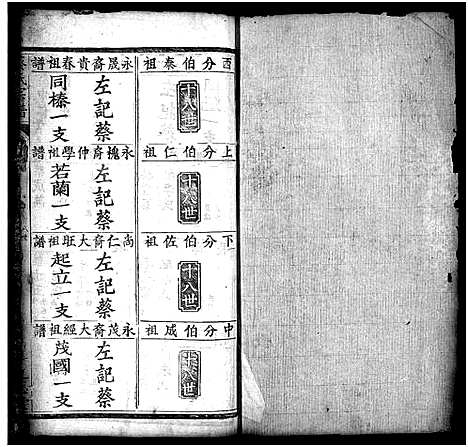 西分伯泰祖
永晟裔貴春祖譜
十八世
左記蔡
同榛一支
上分伯仁祖
永槐裔仲學祖譜
十八世
左記蔡
若蘭一支
下分伯佐祖
尚仁裔大旺祖譜
十八世
左記蔡
起立一支
中分伯成祖
永茂裔大經祖譜
十八世
左記蔡
茂國一支